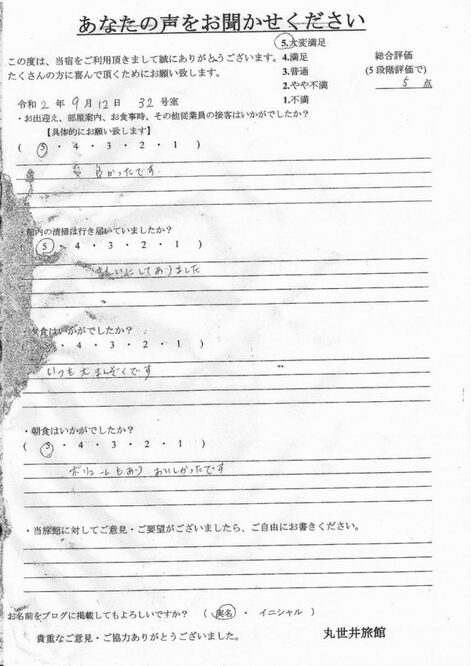 あなたの声をお聞かせください
⑤.大変満足
この度は、当宿をご利用頂きまして誠にありがとうございます。4.満足 総合評価
たくさんの方に喜んで頂くためにお願い致します。 3.普通 (5段階評価で)
2.やや不満 5 点
令和2年9月12日 32号室 1.不満
・お出迎え、部屋案内、お食事時、その他従業員の接客はいかがでしたか?
【具体的にお願い致します】
( ⑤ ・ 4 ・ 3 ・ 2 ・ 1 )
良かったです
館内の清掃は行き届いていましたか?
( ⑤ ・ 4 ・ 3 ・ 2 ・ 1 )
いにしてありました
・夕食はいかがでしたか?
・ 4 ・ 3 ・ 2 ・ 1 )
いつも大まんぞくです
・朝食はいかがでしたか?
( ⑤ ・ 4 ・ 3 ・ 2 ・ 1 )
ボリュームもあり おいしかったです
・当旅館に対してご意見・ご要望がございましたら、ご自由にお書きください。
お名前をブログに掲載してもよろしいですか? ( 実名 ・ イニシャル )
貴重なご意見・ご協力ありがとうございました。 丸世井旅館